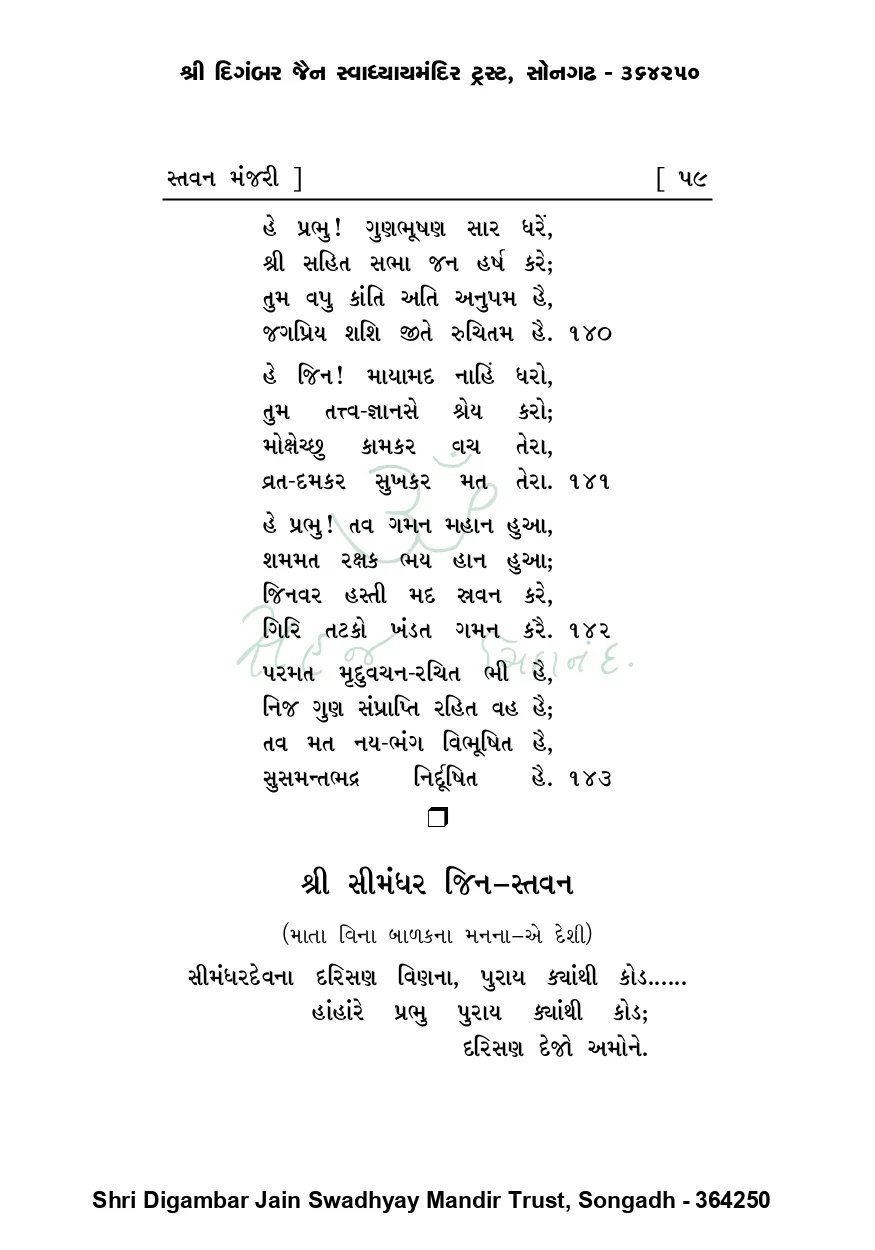 શ્રી દિગંબર જૈન સ્વાધ્યાયમંદિર ટ્રસ્ટ, સોનગઢ - ૩૬૪૨૫૦
સ્તવન મંજરી ] [ ૫૯
હે પ્રભુ! ગુણભૂષણ સાર ધરેં,
શ્રી સહિત સભા જન હર્ષ કરે;
તુમ વપુ કાંતિ અતિ અનુપમ હૈ,
જગપ્રિય શશિ જીતે રુચિતમ હૈ. ૧૪૦
હે જિન! માયામદ નાહિં ધરો,
તુમ તત્ત્વ-જ્ઞાનસે શ્રેય કરો;
મોક્ષેચ્છુ કામકર વચ તેરા,
વ્રત-દમકર સુખકર મત તેરા. ૧૪૧
હે પ્રભુ! તવ ગમન મહાન હુઆ,
શમમત રક્ષક ભય હાન હુઆ;
જિનવર હસ્તી મદ સ્રવન કરે,
ગિરિ તટકો ખંડત ગમન કરૈ. ૧૪૨
પરમત મૃદુવચન-રચિત ભી હૈ,
નિજ ગુણ સંપ્રાપ્તિ રહિત વહ હૈ;
તવ મત નય-ભંગ વિભૂષિત હૈ,
સુસમન્તભદ્ર નિર્દૂષિત હૈ. ૧૪૩
શ્રી સીમંધર જિન–સ્તવન
(માતા વિના બાળકના મનના–એ દેશી)
સીમંધરદેવના દરિસણ વિણના, પુરાય ક્યાંથી કોડ......
હાંહાંરે પ્રભુ પુરાય ક્યાંથી કોડ;
દરિસણ દેજો અમોને.
ૐ
સહજ ચિદાનંદ.
Shri Digambar Jain Swadhyay Mandir Trust, Songadh - 364250